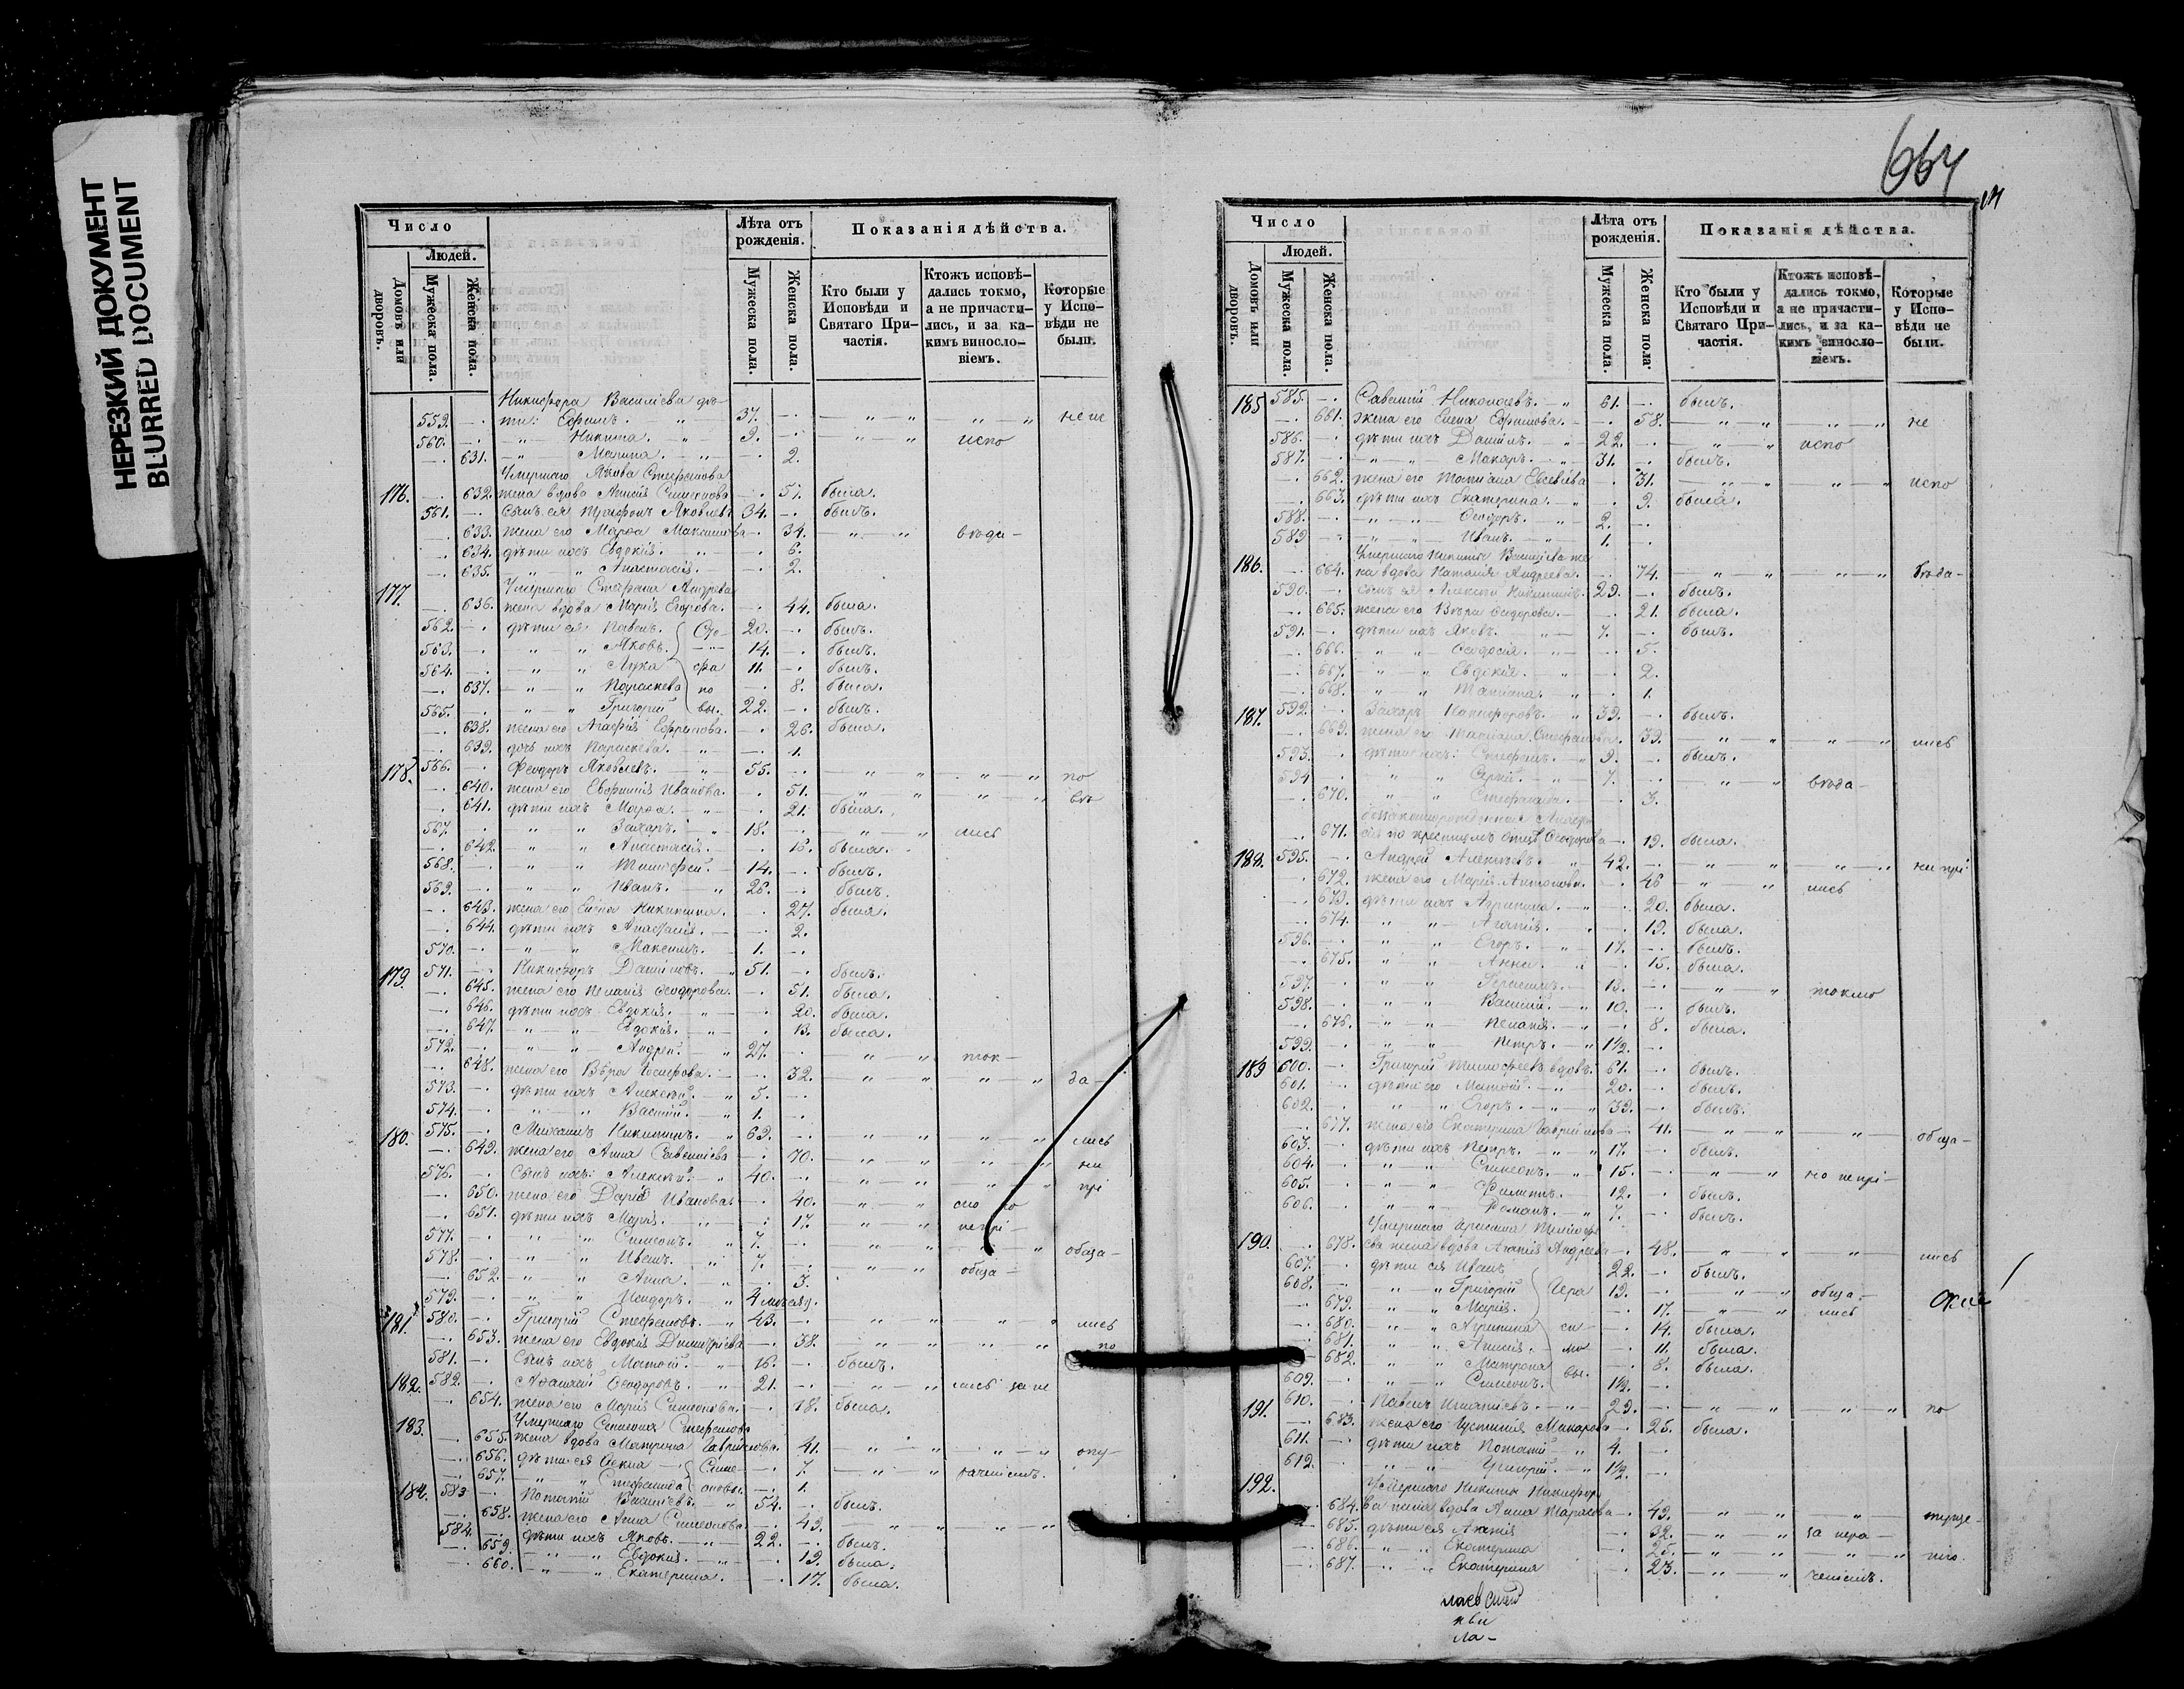 НЕРЕЗКИЙ ДОКУМЕНТ
BLURRED DOCUMENT
Число
Людей.
Домовъ или дворовъ.
Мужеска пола.
Женска пола.
Лѣта отъ рожденія.
Мужеска пола.
Женска пола.
Показанія дѣйства.
Кто были у Исповѣди и Святаго Причастія.
Ктожъ исповѣдались токмо, а не причастились, и за какимъ винословіемъ.
Которые у Исповѣди не были.
Никифора Васильева дѣ-
559. — ти: Ефимъ. 37. —
560. — Никита. 9. — испо
— 631. Марина. — 2.
Умершаго Якова Стефанова
176. — 632. жена вдова Агафія Симеонова — 57. была.
561. — сынъ ея Трифонъ Яковлевъ 34. — былъ.
— 633. жена его Марѳа Максимова — 34. вѣда-
— 634. дѣти ихъ Евдокія. — 6.
— 635. Анастасія. — 2.
177. Умершаго Стефана Андреева
— 636. жена вдова Марія Егорова. — 44. была.
562. — дѣти ея Павелъ. Сте- 20. — былъ.
563. — Яковъ. 14. — былъ.
564. — Лука фа 11. — былъ.
— 637. Параскева но — 8. была.
565. — Григорій вы. 22. — былъ.
— 638. жена его Агафія Ефремова. — 26. была.
— 639. дочь ихъ Параскева. — 1.
178. 566. — Феодоръ Яковлевъ. 55. — но
— 640. жена его Евфимія Иванова. — 51. вѣ
— 641. дѣти ихъ Марѳа. — 21. была.
567. — Захаръ. 18. — лись
— 642. Анастасія. — 16. была.
568. — Тимофей. 14. — былъ.
569. — Иванъ. 26. — былъ.
— 643. жена его Елена Никитина. — 27. была.
— 644. дѣти ихъ — 2.
570. — Максимъ. 1. —
179. 571. — Никифоръ Даниловъ. 51. — былъ.
— 645. жена его Пелагія Ѳеодорова. — 51. была.
— 646. дѣти ихъ Евдокія. — 20. была.
— 647. Евдокія. — 13. была.
572. — Андрей. 27. — ток-
— 648. жена его Вѣра Іосифова. — 32. да-
573. — дѣти ихъ Алексѣй. 5. —
574. — Василій. 1. —
180. 575. — Михаилъ Никитинъ. 69. — лись
— 649. жена его Анна Савельева — 70. ни
576. — Сынъ ихъ: Алексѣй. 40. — прі
— 650. жена его Дарія Иванова. — 40. но
— 651. дѣти ихъ Марія. — 17. непрі-
577. — Симеонъ. 7. —
578. — Иванъ. 7. — обща-
— 652. Анна. — 3. обща-
579. — Исидоръ. 4 мѣсяц.
181. 580. — Григорій Стефановъ. 43. — лись
— 653. жена его Евдокія Димитріева — 38. по
581. — Сынъ ихъ Матѳей. 16. — былъ.
182. 582. — Аѳанасій Ѳеодоровъ. 21. — лись за не
— 654. жена его Марія Симеонова. — 18. была.
183. Умершаго Симеона Стефанова
— 655. жена вдова Матрона Гавриилова. — 41. опу-
— 656. дѣти ея Ѳекла Симе- — 7. рачені­емъ.
— 657. Стефанида оновы. — 1.
184. 583 — Потапій Васильевъ. 54. — былъ.
— 658. жена его Анна Симеонова. — 49.
584. — дѣти ихъ Яковъ. 22. — былъ.
— 659. Евдокія. — 19. была.
— 660. Екатерина. — 17. была.
664
Число
Людей.
Домовъ или дворовъ.
Мужеска пола.
Женска пола.
Лѣта отъ рожденія.
Мужеска пола.
Женска пола
Показанія дѣйства.
Кто были у Исповѣди и Святаго Причастія.
Ктожъ исповѣдались токмо, а не причастились, и за какимъ винословіемъ.
Которые у Исповѣди не были.
185 585. — Савелій Николаевъ. 61. — былъ.
— 661. жена его Елена Ефимова. — 58. не
586. — дѣти ихъ Даниилъ. 22. — испо
587. — Макаръ. 31. — былъ.
— 662. жена его Татіана Евсевіева — 31. испо
— 663. дѣти ихъ Екатерина. — 9. была.
588. — Ѳеодоръ. 2. —
589 — Иванъ. 1. —
Умершаго Никиты Васильева же
186. — 664. на вдова Наталія Андреева. — 74. вѣда-
590. — сынъ ея Алексѣй Никитинъ. 29. — былъ.
— 665. жена его Вѣра Ѳеодорова. — 21. была.
591. — дѣти ихъ Яковъ. 7. — былъ.
— 666. Ѳеодосія. — 5.
— 667. Евдокія. — 2.
— 668. Татіана. — 1.
187. 592. — Захаръ Никифоровъ. 39. — былъ.
— 669. жена его Татіана Стефанова. — 39. лись
593. — дѣти ихъ: Стефанъ. 9. — былъ.
594 — Сергій. 7. — вѣда-
— 670. Стефанида. — 3.
— 671. сія по крестномъ отцѣ Ѳеодорова — 19. была.
188. 595. — Андрей Алексѣевъ. 42. — ни прі
— 672. жена его Марія Антонова. — 46 лись
— 673. дѣти ихъ Агрипина. — 20. была.
— 674. Агапія. — 19. была.
596. — Егоръ. 17. — былъ.
— 675. Анна. — 15. была.
597. — Герасимъ. 13. — токмо
598. — Василій. 10. — былъ.
— 676. Пелагія. — 8. была.
599. — Петръ. 1½. —
189 600. — Григорій Тимофеевъ вдовъ. 61. — былъ.
601. — дѣти его Матѳей. 20. — былъ.
602. — Егоръ. 39. — былъ.
— 677. жена его Екатерина Гавриилова — 41. обща-
603. — дѣти ихъ Петръ. 17. — былъ.
604. — Симеонъ. 15. — но непрі-
605. — Филиппъ. 12. — былъ.
606. — Романъ. 7. — былъ.
Умершаго Герасима Тимофе
190. — 678. ева жена вдова Агапія Андреева — 48. лись
607. — дѣти ея Иванъ 22. — былъ.
608. — Григорій Гера 19. — обща-
— 679. Марія. — 17. лись
— 680. Агрипина си- — 14. была.
— 681. — 11. была.
— 682. Матрона вы. — 8. была.
609. — Симеонъ. 1½. —
191. 610. — Павелъ Игнатіевъ. 29. — по
— 683. жена его Іустинія Макарова — 25. была.
611. — дѣти ихъ Потапій 4. —
612. — Григорій. 1½. —
192. Умершаго Никиты Никифоро
— 684. ва жена вдова Анна Тарасова — 49.
— 685. дѣти ея Агапія — 32. за нера-
— 686. Екатерина — 25.
— 687. Екатерина — 23. ченіемъ.